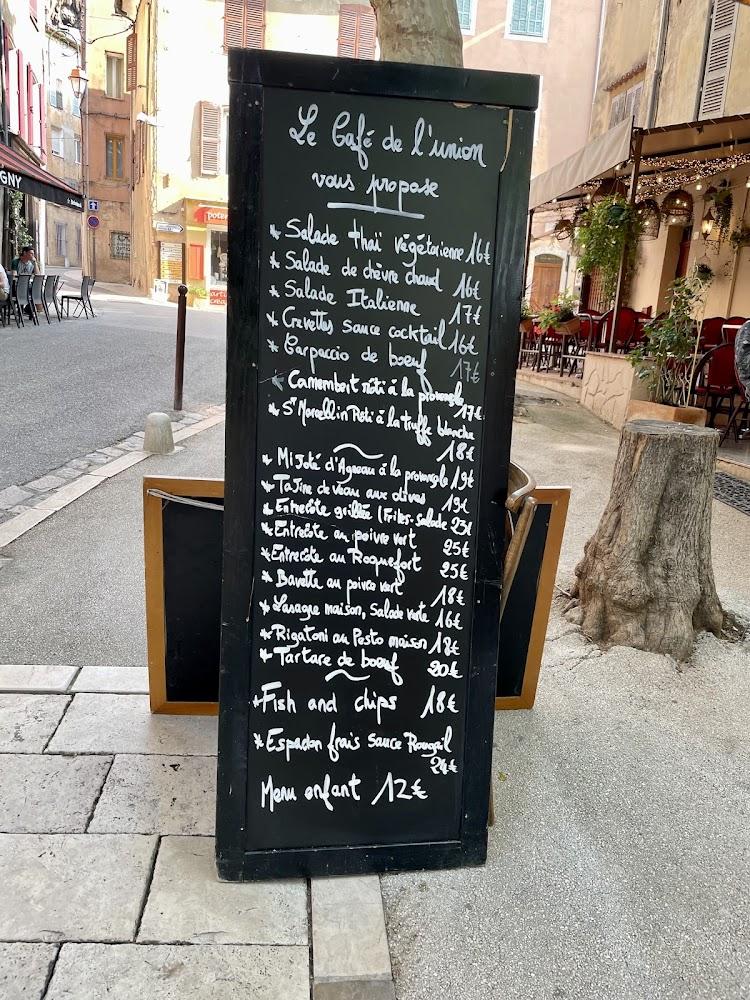 GNY
Le Café de l'union
vous propose
* Salade thaï végétarienne 16€
* Salade de chèvre chaud 16€
* Salade Italienne 17€
* Crevettes sauce cocktail 16€
* Carpaccio de boeuf 17€
* Camembert rôti à la provençale 17€
* St Marcellin Rôti à la truffe blanche
18€
* Mijoté d'Agneau à la provençale 19€
* Tajine de veau aux olives 19€
* Entrecôte grillée (Frites-Salade 23€
* Entrecôte au poivre vert 25€
* Entrecôte au Roquefort 25€
* Bavette au poivre vert 18€
* Lasagne maison, Salade verte 16€
* Rigatoni au Pesto maison 18€
* Tartare de boeuf 20€
* Fish and chips 18€
* Espadon frais Sauce Rougail
24€
Menu enfant 12€